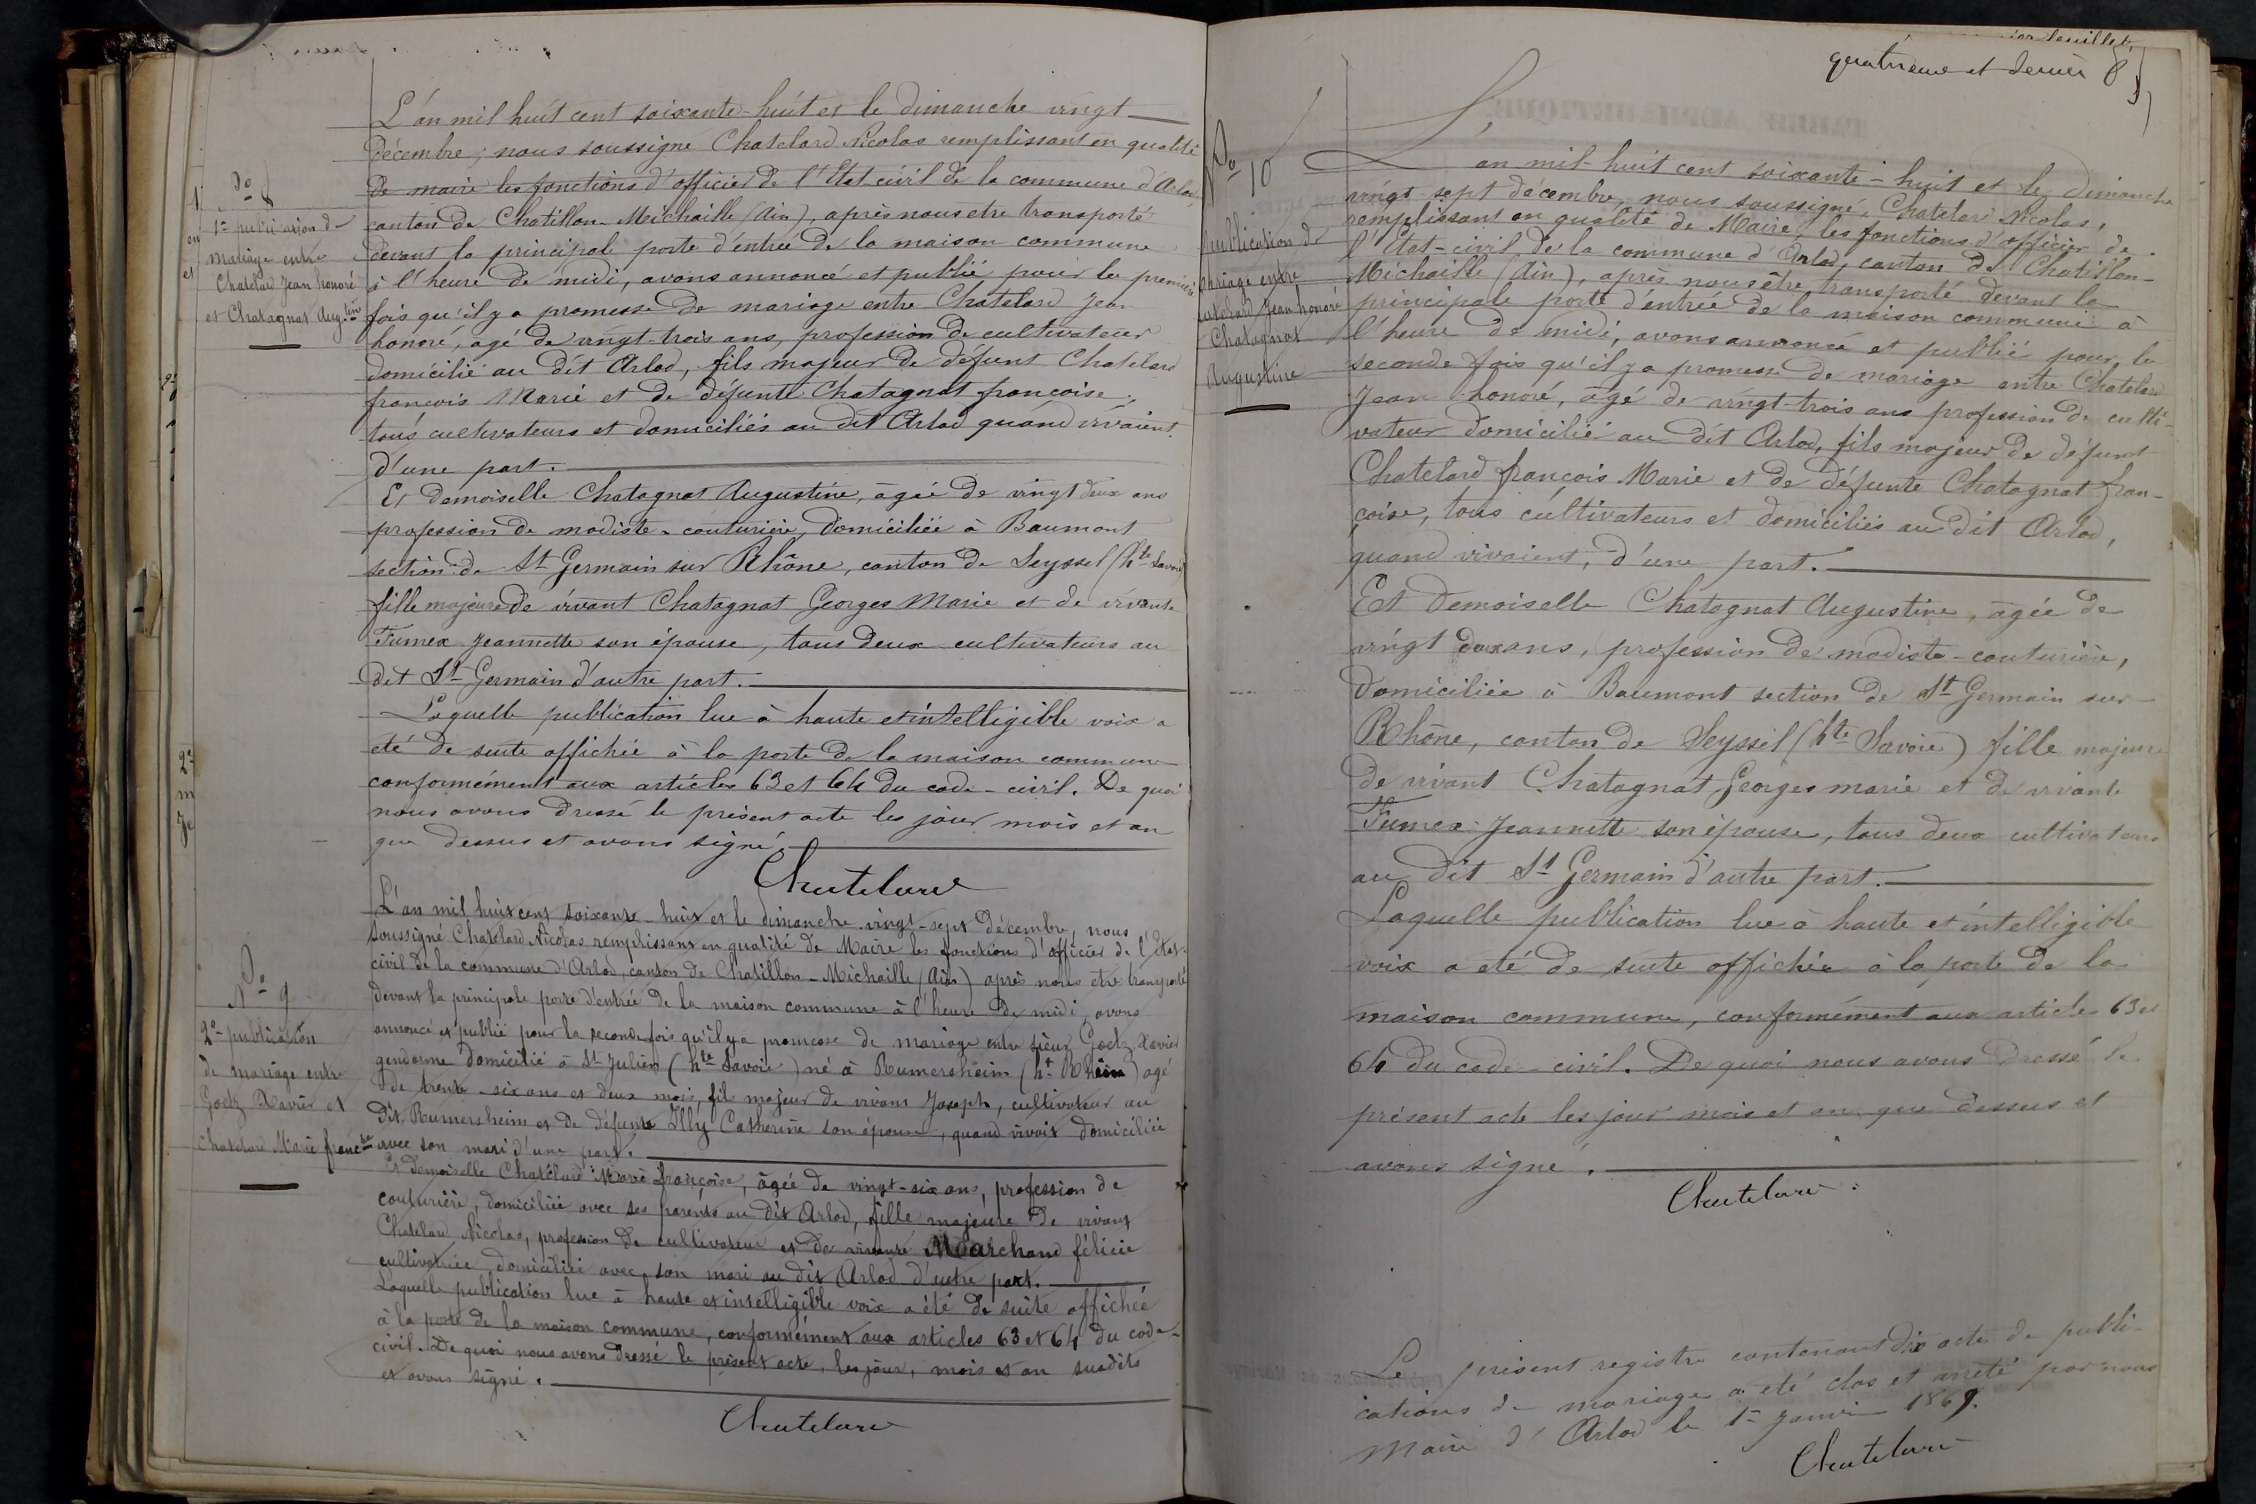 N° 8
1re publication de
mariage entre
Chatelard Jean honoré
et Chatagnat Augtine
L'an mil huit cent soixante-huit et le dimanche vingt
décembre, nous soussigné Chatelard Nicolas remplissant en qualité
de maire les fonctions d'officier de l'Etat civil de la commune d'Arlod
canton de Chatillon-Michaille (Ain), après nous etre transporté
devant la principale porte d'entrée de la maison commune
à l'heure de midi, avons annoncé et publié pour la première
fois qu'il y a promesse de mariage entre Chatelard Jean
honoré, agé de vingt-trois ans, profession de cultivateur
domicilié au dit Arlod, fils majeur de défunt Chatelard
françois Marie et de défunte Chatagnat françoise,
tous cultivateurs et domiciliés au dit Arlod quand vivaient
d'une part.
Et demoiselle Chatagnat Augustine, âgée de vingt deux ans
profession de modiste-couturière, domiciliée à Baumont
section de St Germain sur Rhône, canton de Seyssel (hte Savoie
fille majeure de vivant Chatagnat Georges Marie et de vivante
Fumex Jeannette son épouse, tous deux cultivateurs au
dit St Germain d'autre part.
Laquelle publication lue à haute et intelligible voix a
été de suite affichée à la porte de la maison commune
conformément aux articles 63 et 64 du code-civil. De quoi
nous avons dressé le présent acte les jour mois et an
que dessus et avons signé.
Chatelard
N° 9
2e publication
de mariage entre
Goetz Xavier et
Chatelard Marie franç.se
L'an mil huit cent soixante-huit et le dimanche vingt-sept décembre, nous
soussigné Chatelard Nicolas remplissant en qualité de Maire les fonctions d'officier de l'Etat-
civil de la commune d'Arlod, canton de Chatillon-Michaille (Ain) après nous etre transporté
devant la principale porte d'entrée de la maison commune à l'heure de midi, avons
annoncé et publié pour la seconde fois qu'il y a promesse de mariage entre sieur Goetz Xavier
gendarme domicilié à St Julien (hte Savoie) né à Rumersheim (ht Rhein) agé
de trente-six ans et deux mois, fils majeur de vivant Joseph, cultivateur au
dit Rumersheim et de défunte Illy Catherine son épouse, quand vivait domiciliée
avec son mari d'une part.
Et demoiselle Chatelard Marie françoise, âgée de vingt-six ans, profession de
couturière, domiciliée avec ses parents au dit Arlod, fille majeure de vivant
Chatelard Nicolas, profession de cultivateur et de vivante Marchand félicie
cultivatrice, domiciliée avec son mari au dit Arlod d'autre part.
Laquelle publication lue à haute et intelligible voix a été de suite affichée
à la porte de la maison commune, conformément aux articles 63 et 64 du code-
civil. De quoi nous avons dressé le présent acte, les jour, mois et an susdits
et avons signé.
Chatelard
quatrième et dernier feuillet
N° 10
publication de
mariage entre
Chatelard Jean honoré
Chatagnat
Augustine
L'an mil-huit cent soixante-huit et le dimanche
vingt-sept décembre, nous soussigné, Chatelard Nicolas,
remplissant en qualité de Maire, les fonctions d'officier de
l'Etat-civil de la commune d'Arlod, canton de Chatillon-
Michaille (Ain), après nous être transporté devant la
principale porte d'entrée de la maison commune à
l'heure de midi, avons annoncé et publié pour la
seconde fois qu'il y a promesse de mariage entre Chatelard
Jean honoré, âgé de vingt-trois ans profession de culti-
vateur domicilié au dit Arlod, fils majeur de défunt
Chatelard françois Marie et de défunte Chatagnat fran-
çoise, tous cultivateurs et domiciliés au dit Arlod,
quand vivaient, d'une part.
Et Demoiselle Chatagnat Augustine, âgée de
vingt deux ans, profession de modiste-couturière,
domiciliée à Baumont section de St Germain sur
Rhône, canton de Seyssel (hte Savoie) fille majeure
de vivant Chatagnat Georges marie et de vivante
Fumex Jeannette son épouse, tous deux cultivateurs
au dit St Germain d'autre part.
Laquelle publication lue à haute et intelligible
voix a été de suite affichée à la porte de la
maison commune, conformément aux articles 63 et
64 du code-civil. De quoi nous avons dressé le
présent acte les jour mois et an que dessus et
avons signé.
Chatelard
Le présent registre contenant dix acte de publi-
cations de mariages a été clos et arrêté par nous
Maire d'Arlod le 1er Janvier 1869.
Chatelard